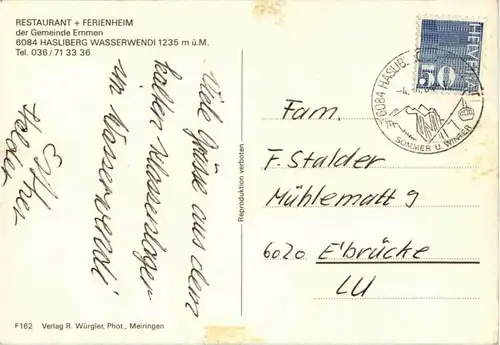 RESTAURANT + FERIENHEIM
der Gemeinde Emmen
6084 HASLIBERG WASSERWENDI 1235 m ü.M.
Tel. 036/71 33 36
Viele Grüsse aus dem
kalten Klassenlager
in Wasserwendi
Reproduktion verboten
HELVETIA
50
6084 HASLIB
SOMMER U. WINTER
Fam.
F. Stalder
Mühlematt 9
6020 E'brücke
LU
F162 Verlag R. Würgler, Phot., Meiringen